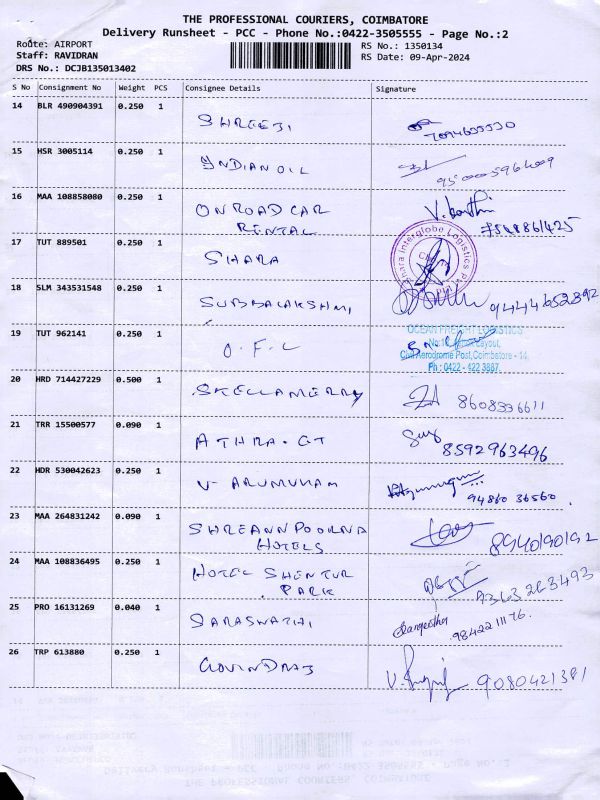 THE PROFESSIONAL COURIERS, COIMBATORE
Delivery Runsheet - PCC - Phone No.:0422-3505555 - Page No.:2
Route: AIRPORT
RS No.: 1350134
Staff: RAVIDRAN
RS Date: 09-Apr-2024
DRS No.: DCJB135013402
S No Consignment No Weight PCS Consignee Details Signature
14 BLR 490904391 0.250 1 SHREEJI
15 HSR 3005114 0.250 1 INDIAN OIL
9500059640009
16 MAA 108858080 0.250 1 ON ROAD CAR V.Karthi
RENTAL
17 TUT 889501 0.250 1 SHARA
18 SLM 343531548 0.250 1 SUBBALAKSHMI 9444652392
19 TUT 962141 0.250 1 O.F.L
OCEAN FREIGHT LOGISTICS
Layout,
Civil Aerodrome Post, Coimbatore - 14.
Ph : 0422 - 422 3887.
20 HRD 714427229 0.500 1 SKELLAMERRY 8608336611
21 TRR 15500577 0.090 1 ATHRA. GT 8592963496
22 HDR 530042623 0.250 1 V ARUMUHAM
94860 36560.
23 MAA 264831242 0.090 1 SHREANNPOORNA
HOTELS 8940190192
24 MAA 108836495 0.250 1 HOTEL SHENTUR
PARK 9363263493
25 PRO 16131269 0.040 1 SARASWATHI Sangeetha
98422 11176.
26 TRP 613880 0.250 1 GOVINDRAJ 9080421381